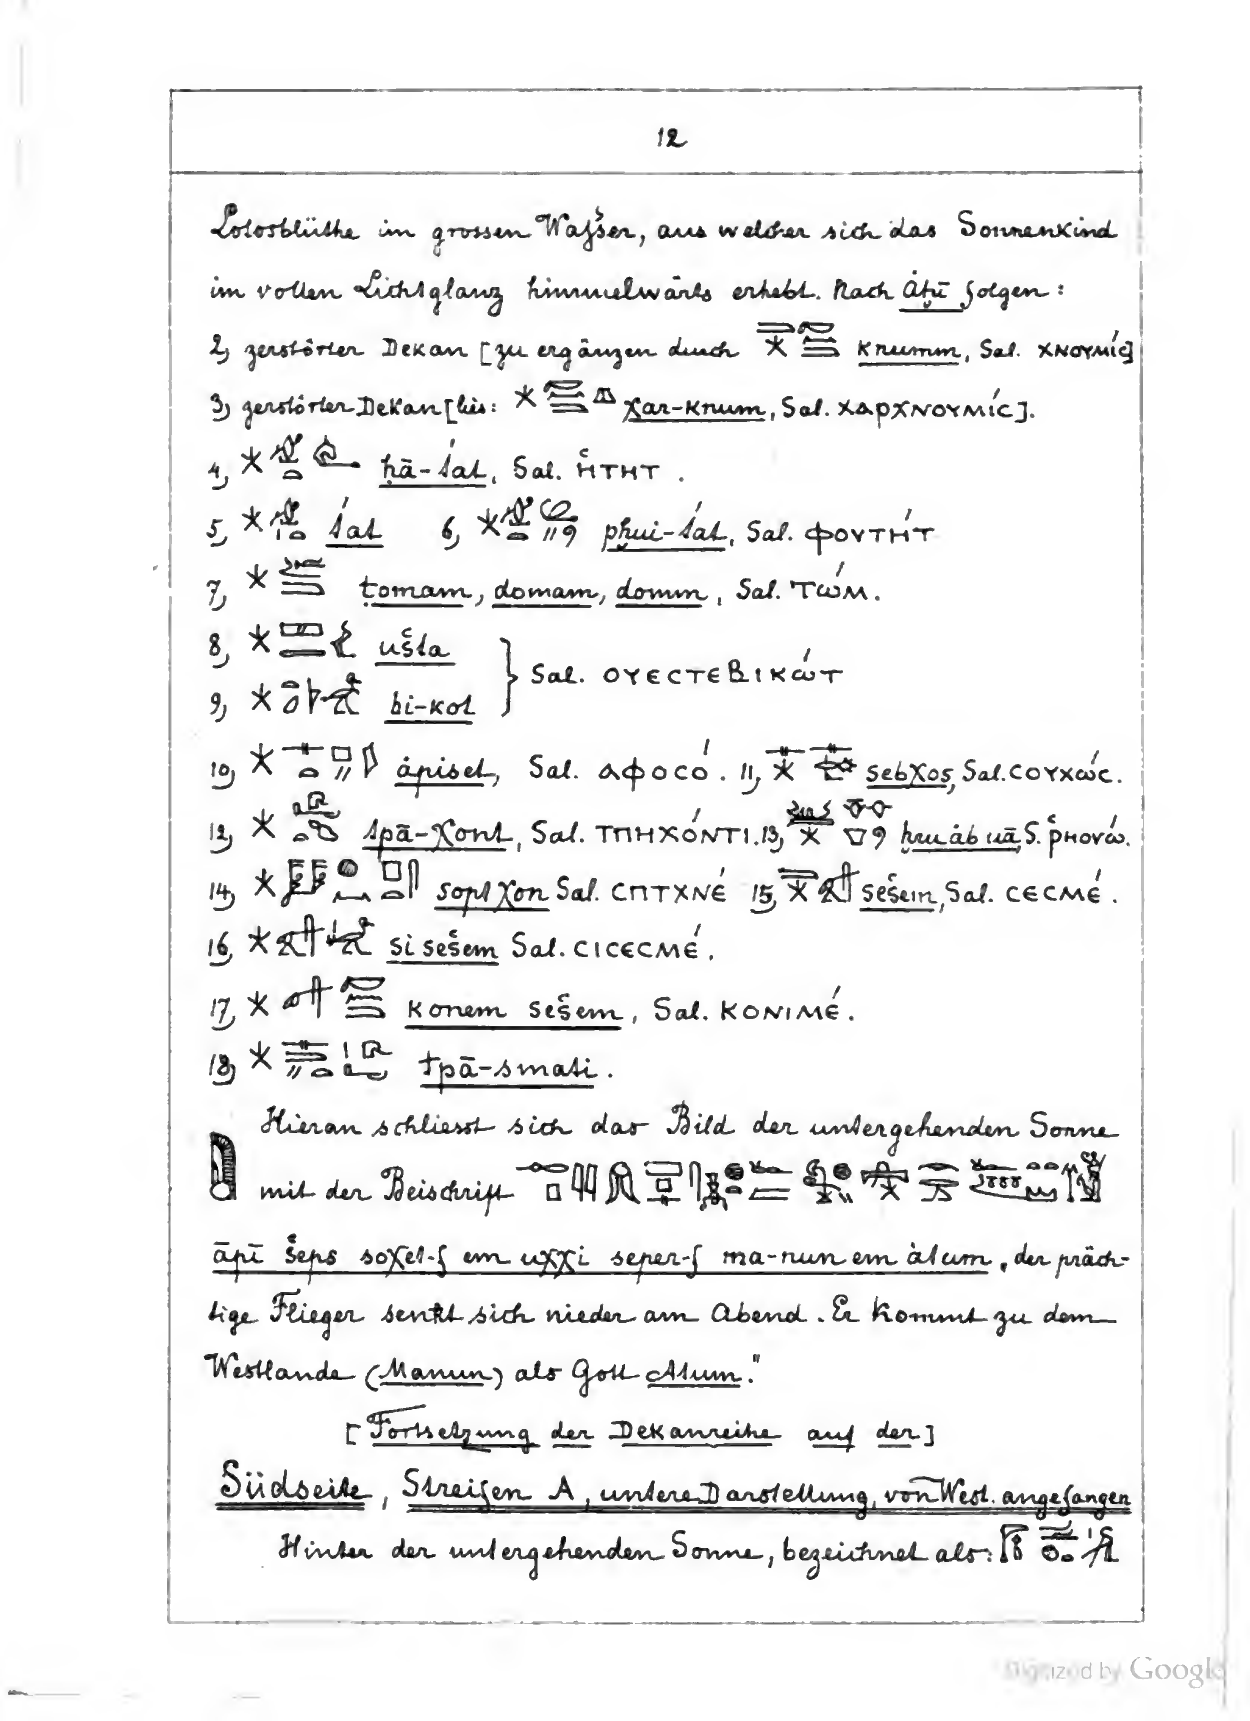 12
Lotosblüthe im grossen Waßer, aus welcher sich das Sonnenkind
im vollen Lichtglanz himmelwärts erhebt. Nach àḫī folgen:
2, zerstörter Dekan [zu ergänzen durch knumm, Sal. ΧΝΟΥΜίC]
3, zerstörter Dekan [lies: χar-knum, Sal. ΧΑΡΧΝΟΥΜίC].
4, ḥā-t́at, Sal. ἩΤΗΤ.
5, t́at 6, pḥui-t́at, Sal. ΦΟΥΤΉΤ
7, ṭomam, domam, domm, Sal. ΤΏΜ.
8, ušta
9, bi-kot } Sal. ΟΥЄCΤЄΒΙΚΏΤ
10, àpiset, Sal. ΑΦΟCΌ. 11, sebχos, Sal. CΟΥΧΏC.
12, tpā-χont, Sal. ΤΠΗΧΌΝΤΙ. 13, ḥu àb uā, S. ῬΗΟΥΏ.
14, soptχon Sal. CΠΤΧΝЄ́ 15, sešem, Sal. CЄCΜЄ́.
16, si sešem Sal. CΙCЄCΜЄ́.
17, konem sešem, Sal. ΚΟΝΙΜЄ́.
18, tpā-smati.
Hieran schliesst sich das Bild der untergehenden Sonne
mit der Beischrift
āpī šeps soχet-f em uχχi seper-f ma-nun em àtum, der präch-
tige Flieger senkt sich nieder am Abend. Er kommt zu dem
Westlande (Manun) als Gott Atum."
[Fortsetzung der Dekanreihe auf der]
Südseite, Streifen A, untere Darstellung, von West. angefangen
Hinter der untergehenden Sonne, bezeichnet als:
Digitized by Google